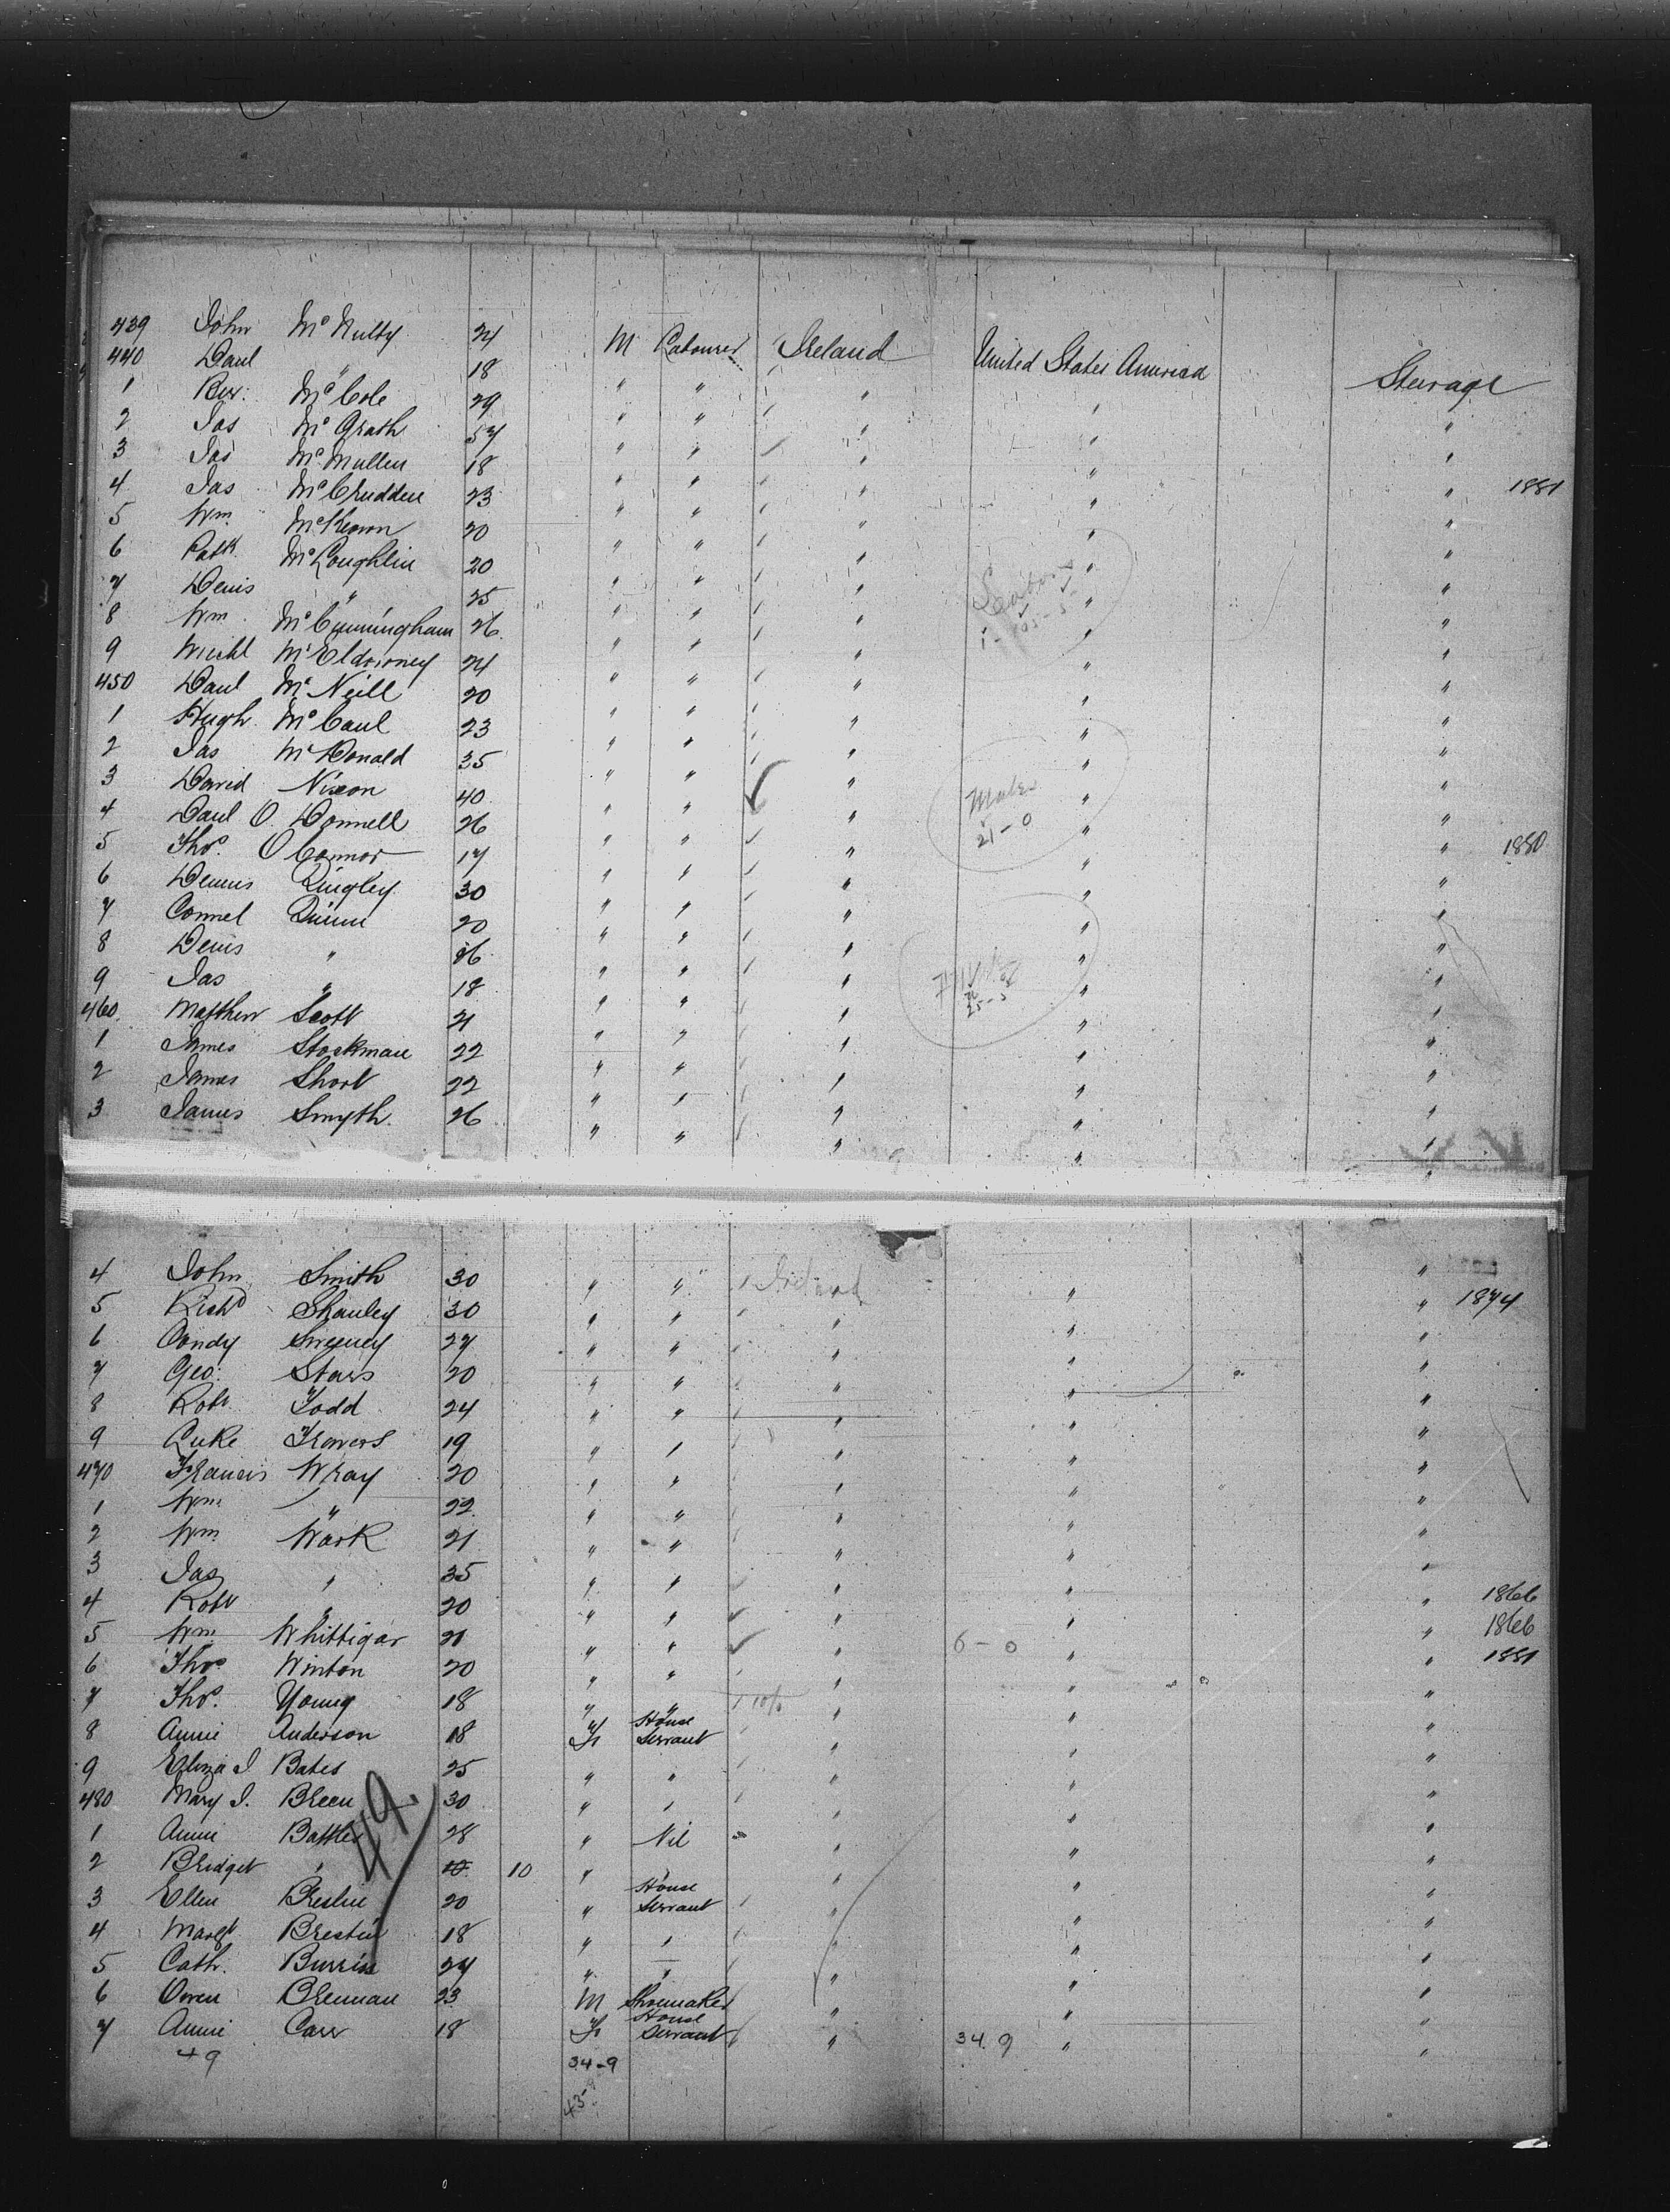 439 John McNulty 24 M Labourer Ireland United States America Steerage
440 Danl " 18 " " " " "
1 Bern: McCole 29 " " " " "
2 Jas McGrath 57 " " " " "
3 Jas McMullen 18 " " " " " 1881
4 Jas McCrudden 23 " " " " "
5 Wm McKeown 20 " " " " "
6 Patk McLoughlin 20 " " " " "
7 Denis " 25 " " " " "
8 Wm McCunningham 26 " " " " "
9 Michl McEldowney 24 " " " " "
450 Danl McNeill 20 " " " " "
1 Hugh McCaul 23 " " " " "
2 Jas McDonald 35 " " " " "
3 David Nixon 40 " " " " "
Males
4 Danl O'Donnell 26 " " " " "
21-0
5 Thos. O'Connor 17 " " " " " 1880
6 Dennis Quigley 30 " " " " "
7 Connel Quinn 20 " " " " "
8 Denis " 26 " " " " "
9 Jas " 18 " " " " "
460 Matthew Scott 21 " " " " "
1 James Stockman 22 " " " " "
2 James Short 22 " " " " "
3 James Smyth 26 " " " " "
4 John Smith 30 " " Ireland " "
5 Richd Shanley 30 " " " " " 1874
6 Condy Sweeney 27 " " " " "
7 Geo: Stars 20 " " " " "
8 Robt Todd 24 " " " " "
9 Luke Travers 19 " " " " "
470 Francis Wray 20 " " " " "
1 Wm " 22 " " " " "
2 Wm Wark 21 " " " " "
3 Jas " 35 " " " " "
4 Robt " 20 " " " " " 1866
5 Wm Whittigar 21 " " " 6-0 " " 1866
6 Thos Winton 20 " " " " " 1881
7 Thos. Young 18 " " " " "
8 Annie Anderson 18 F House Servant " " "
9 Eliza J Bates 25 " " " " "
480 Mary J. Breen 30 " " " " "
49.
1 Annie Battles 28 " Nil " " "
2 Bridget " 10 10 " " " "
3 Ellen Breslin 20 " House Servant " " "
4 Margt Breslin 18 " " " " "
5 Cath. Burris 24 " " " " "
6 Owen Brennan 23 M Shoemaker " " "
7 Annie Carr 18 F House Servant " 34.9 " "
49 34-9
43-